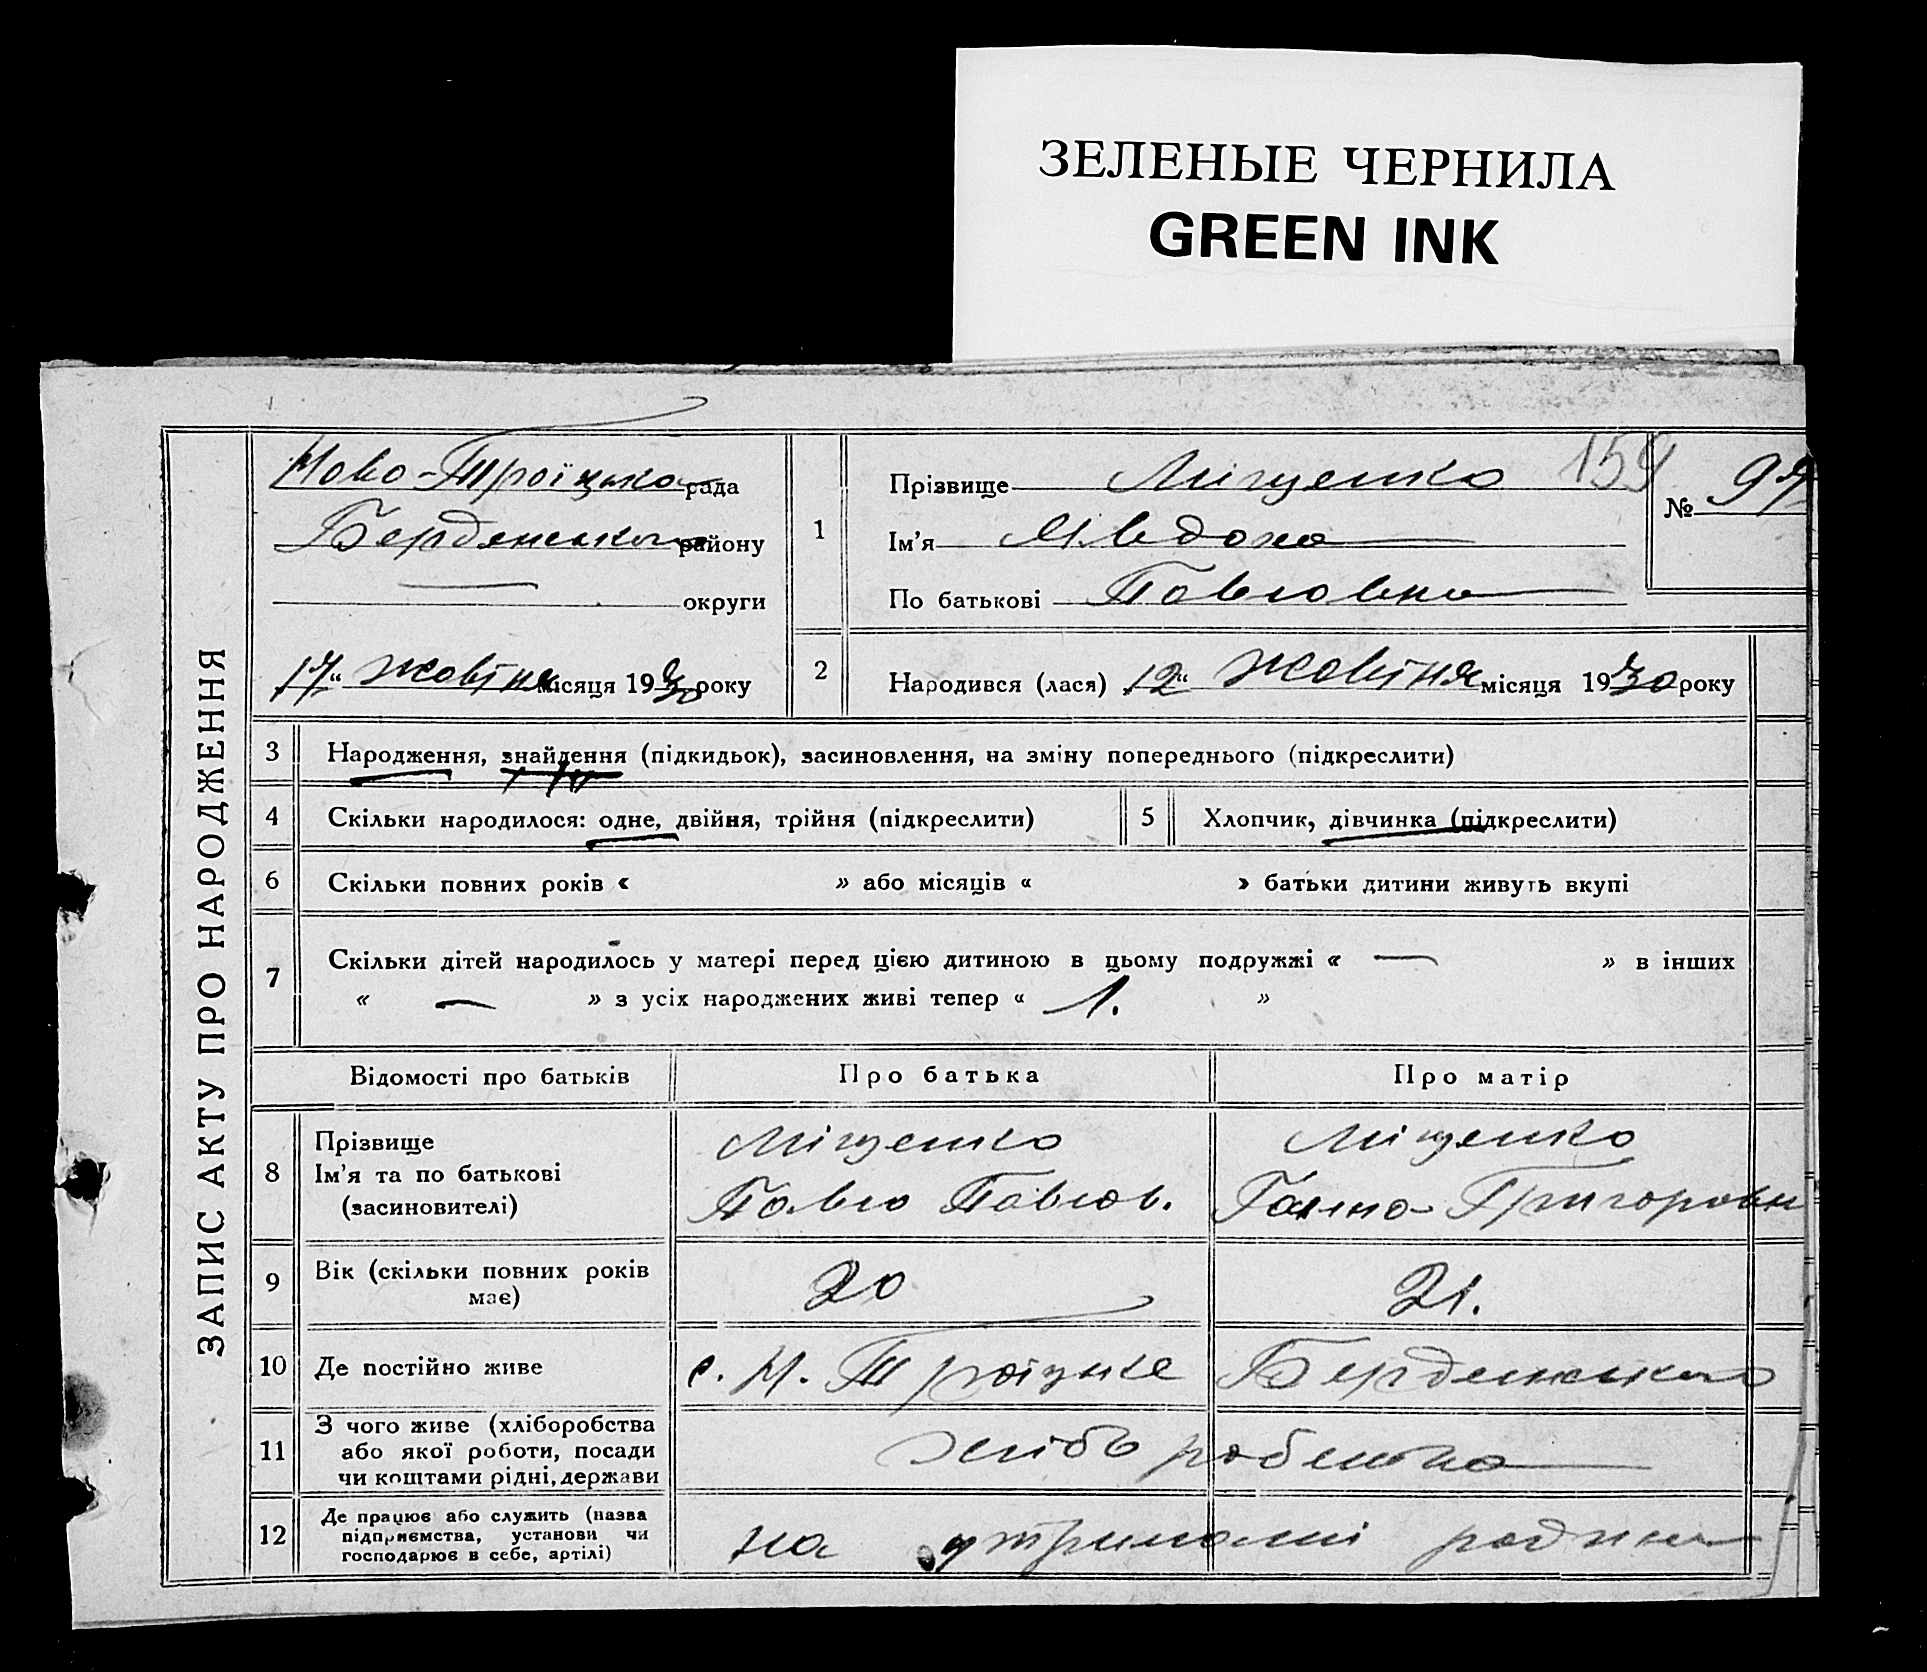 ЗЕЛЕНЫЕ ЧЕРНИЛА
GREEN INK
ЗАПИС АКТУ ПРО НАРОДЖЕННЯ
Ново-Троїцька рада
Бердянського району
округи
17 “ жовтня місяця 1930 року
1
Прізвище Міщенко
159
№ 97
Ім’я Явдоха
По батькові Павловна
2
Народився (лася) 12 “ жовтня місяця 1930 року
3 Народження, знайдення (підкидьок), засиновлення, на зміну попереднього (підкреслити)
4 Скільки народилося: одне, двійня, трійня (підкреслити)
5 Хлопчик, дівчинка (підкреслити)
6 Скільки повних років « » або місяців « » батьки дитини живуть вкупі
7 Скільки дітей народилось у матері перед цією дитиною в цьому подружжі « — » в інших
« — » з усіх народжених живі тепер « 1. »
Відомості про батьків Про батька Про матір
8 Прізвище
Ім’я та по батькові
(засиновителі)
Міщенко
Павло Павлов.
Міщенко
Ганна Григоровн
9 Вік (скільки повних років
має)
20
21.
10 Де постійно живе
с. Н. Троїцьке Бердянського
11 З чого живе (хліборобства
або якої роботи, посади
чи коштами рідні, держави
12 Де працює або служить (назва
підприємства, установи чи
господарює в себе, артілі)
на утриманні родини